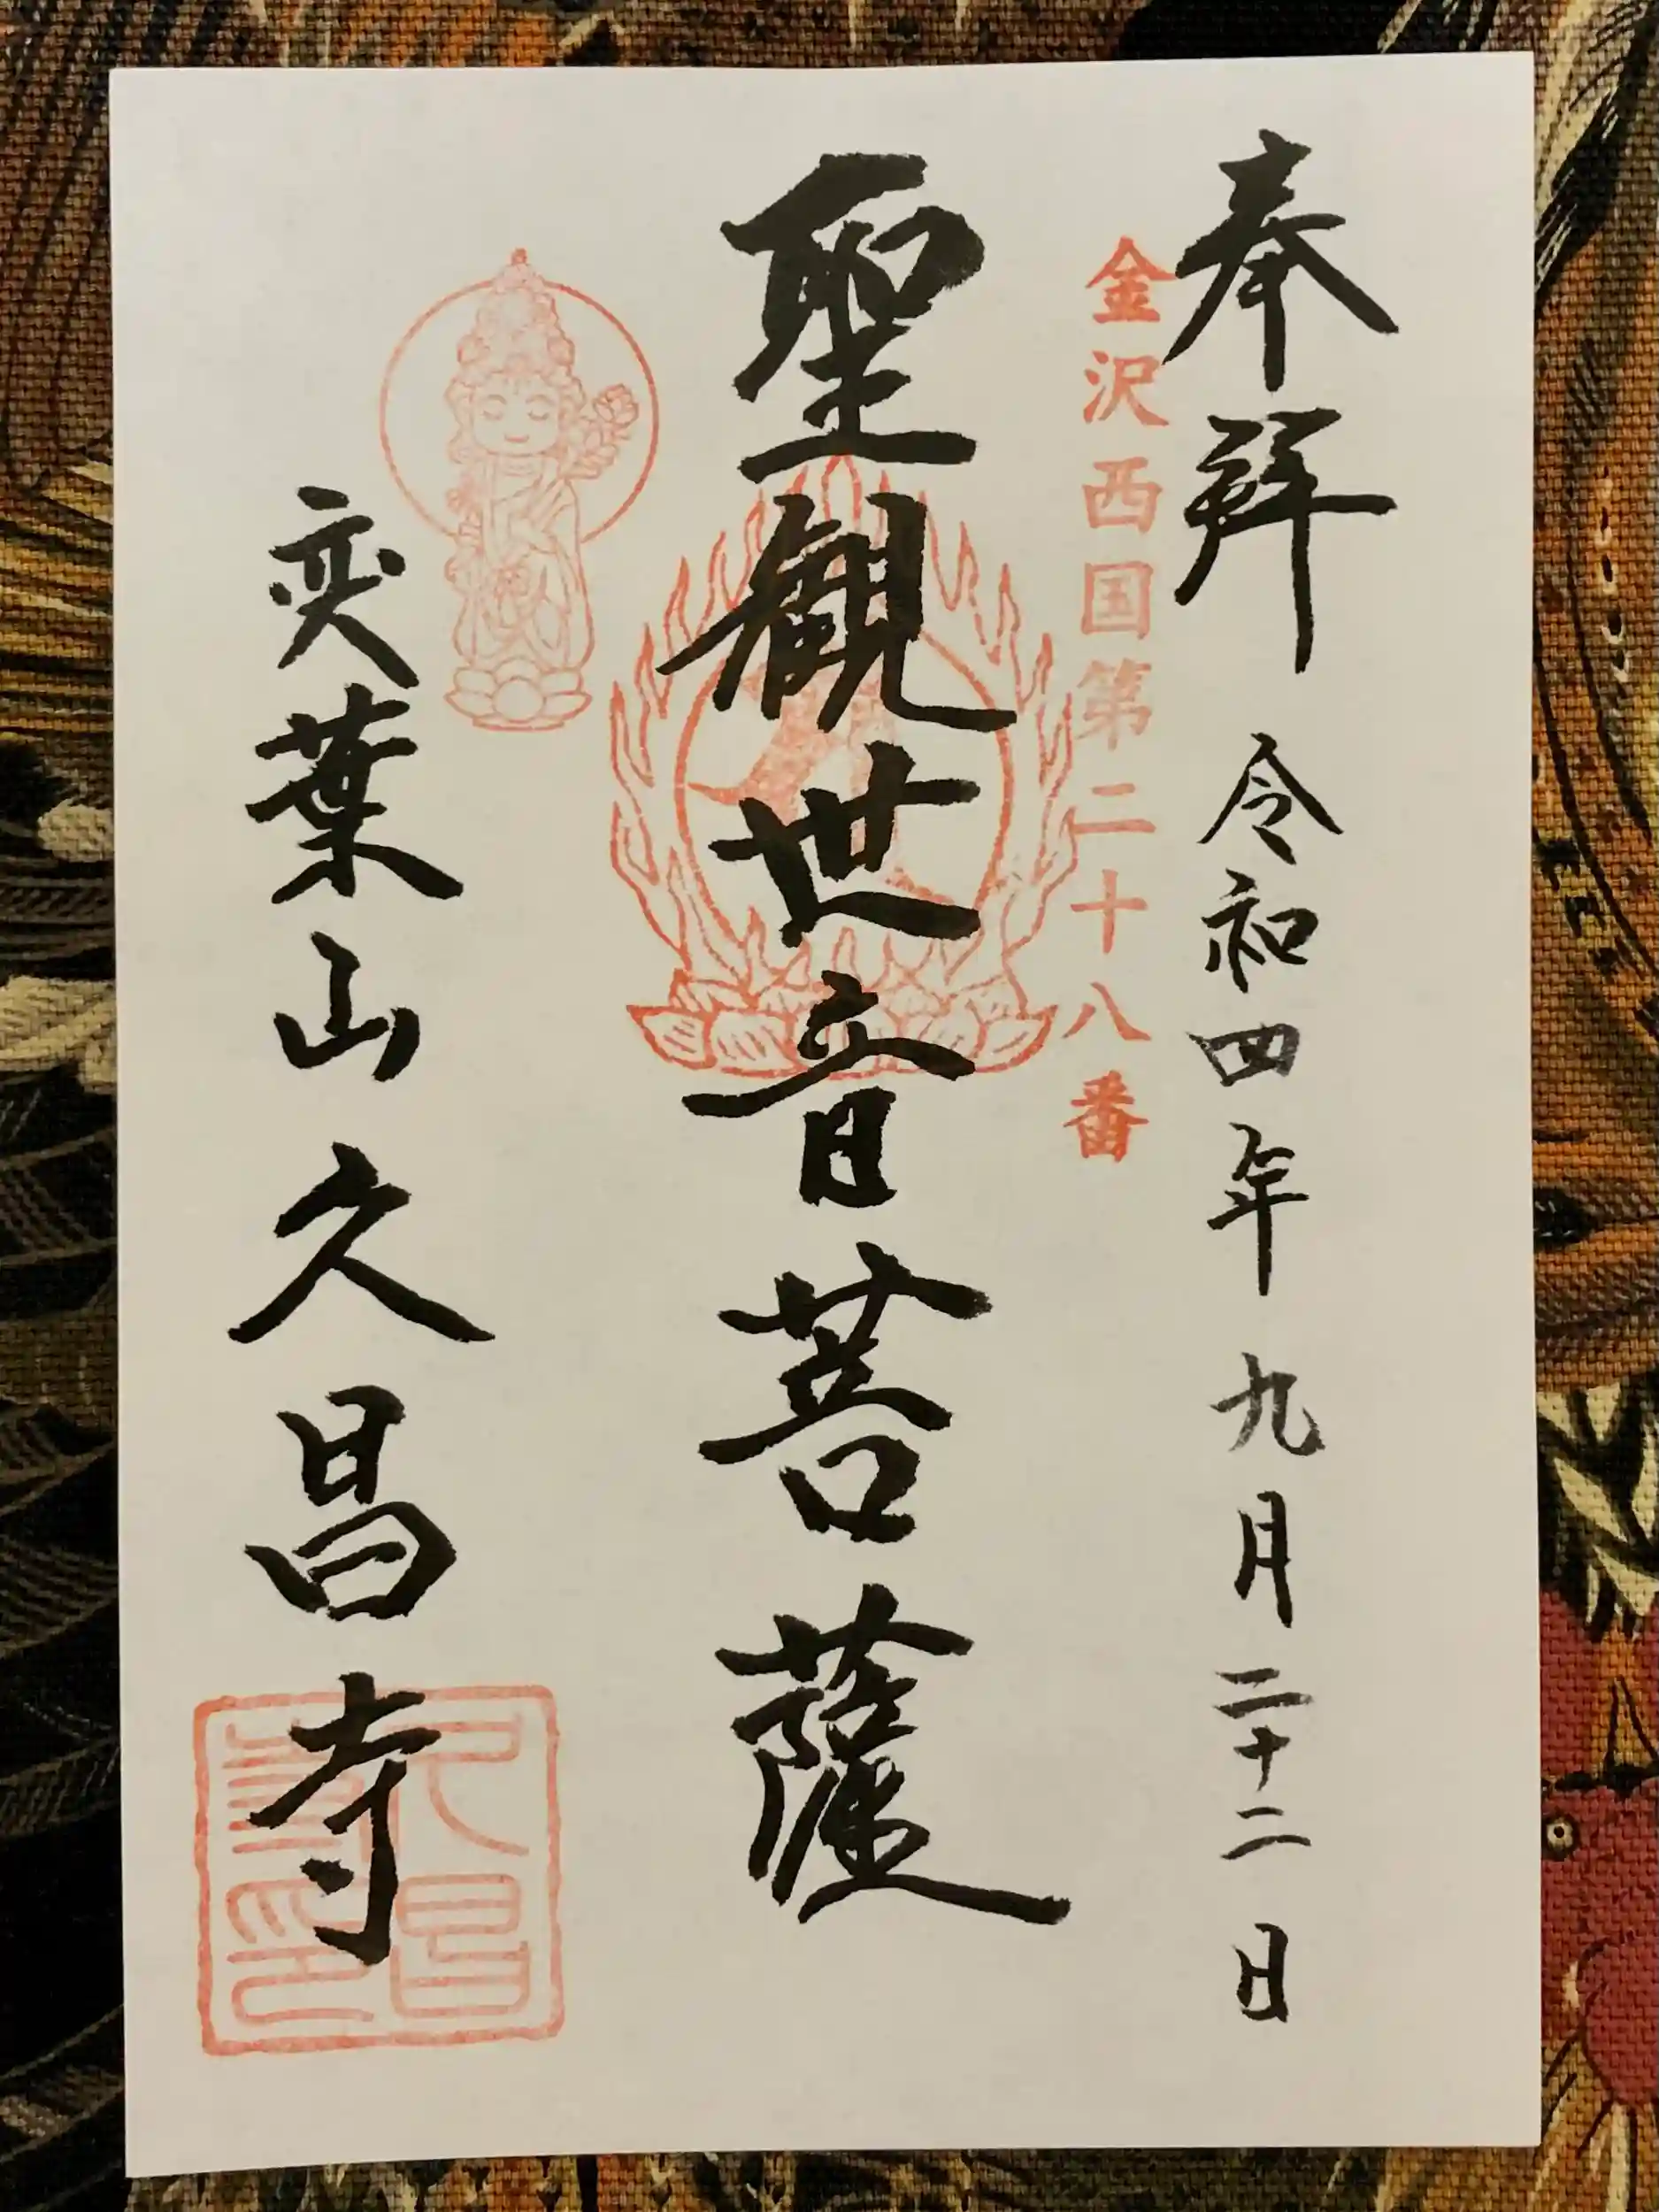 奉拜 令和四年九月二十二日
金沢西国第二十八番
聖観世音菩薩
奕葉山久昌寺
久昌寺印